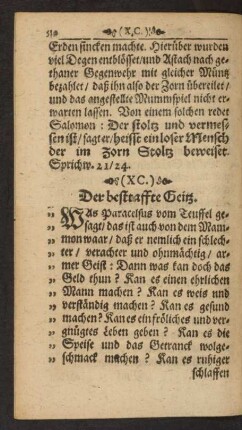 52 (X,C.)
Erden sincken machte. Hierüber wurden
viel Degen entblösset/ und Astach nach ge-
thaner Gegenwehr mit gleicher Müntz
bezahlet/ daß ihn also der Zorn übereilet/
und das angestellte Mummspiel nicht er-
warten lassen. Von einem solchen redet
Salomon: Der stoltz und vermes-
sen ist/ sagt er/ heisst ein loser Mensch
der im Zorn Stoltz beweiset.
Sprichw. 21/24.
(XC.)
Der bestraffte Geitz.
„WAs Paracelsus vom Teuffel ge-
„ sagt/ das ist auch von dem Mam-
„ mon waar/ daß er nemlich ein schlech-
„ ter/ verachter und ohnmächtig/ ar-
„ mer Geist: Dann was kan doch das
„ Geld thun? Kan es einen ehrlichen
„ Mann machen? Kan es weis und
„ verständig machen? Kan es gesund
„ machen? Kan es ein fröliches und ver-
„ gnügtes Leben geben? Kan es die
„ Speise und das Getranck wolge-
„ schmack machen? Kan es ruhiger
schlaffen